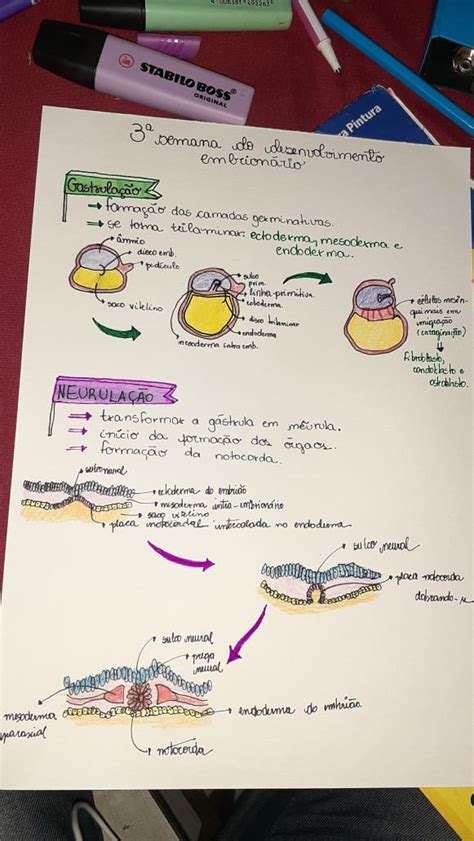 STABILO BOSS
ORIGINAL
Pintura
3ª semana do desenvolvimento
embrionário
Gastrulação
→ formação das camadas germinativas.
→ se torna trilaminar: ectoderma, mesoderma e
endoderma.
âmnio
disco emb.
pedículo
saco vitelino
sulco
prim.
linha-primitiva
ectoderma
disco trilaminar
endoderma
mesoderma intra emb.
células mesen-
quimais em
migração
(invaginação)
fibroblasto,
condroblasto e
osteoblasto
NEURULAÇÃO
→ transformar a gástrula em nêurula.
→ início da formação dos órgãos.
→ formação da notocorda.
sulco neural
ectoderma do embrião
mesoderma intra-embrionário
saco vitelino
placa notocordal intercalada no endoderma
sulco neural
placa notocorda
dobrando-se
sulco neural
prega
neural
mesoderma
paraxial
endoderma do embrião
notocorda